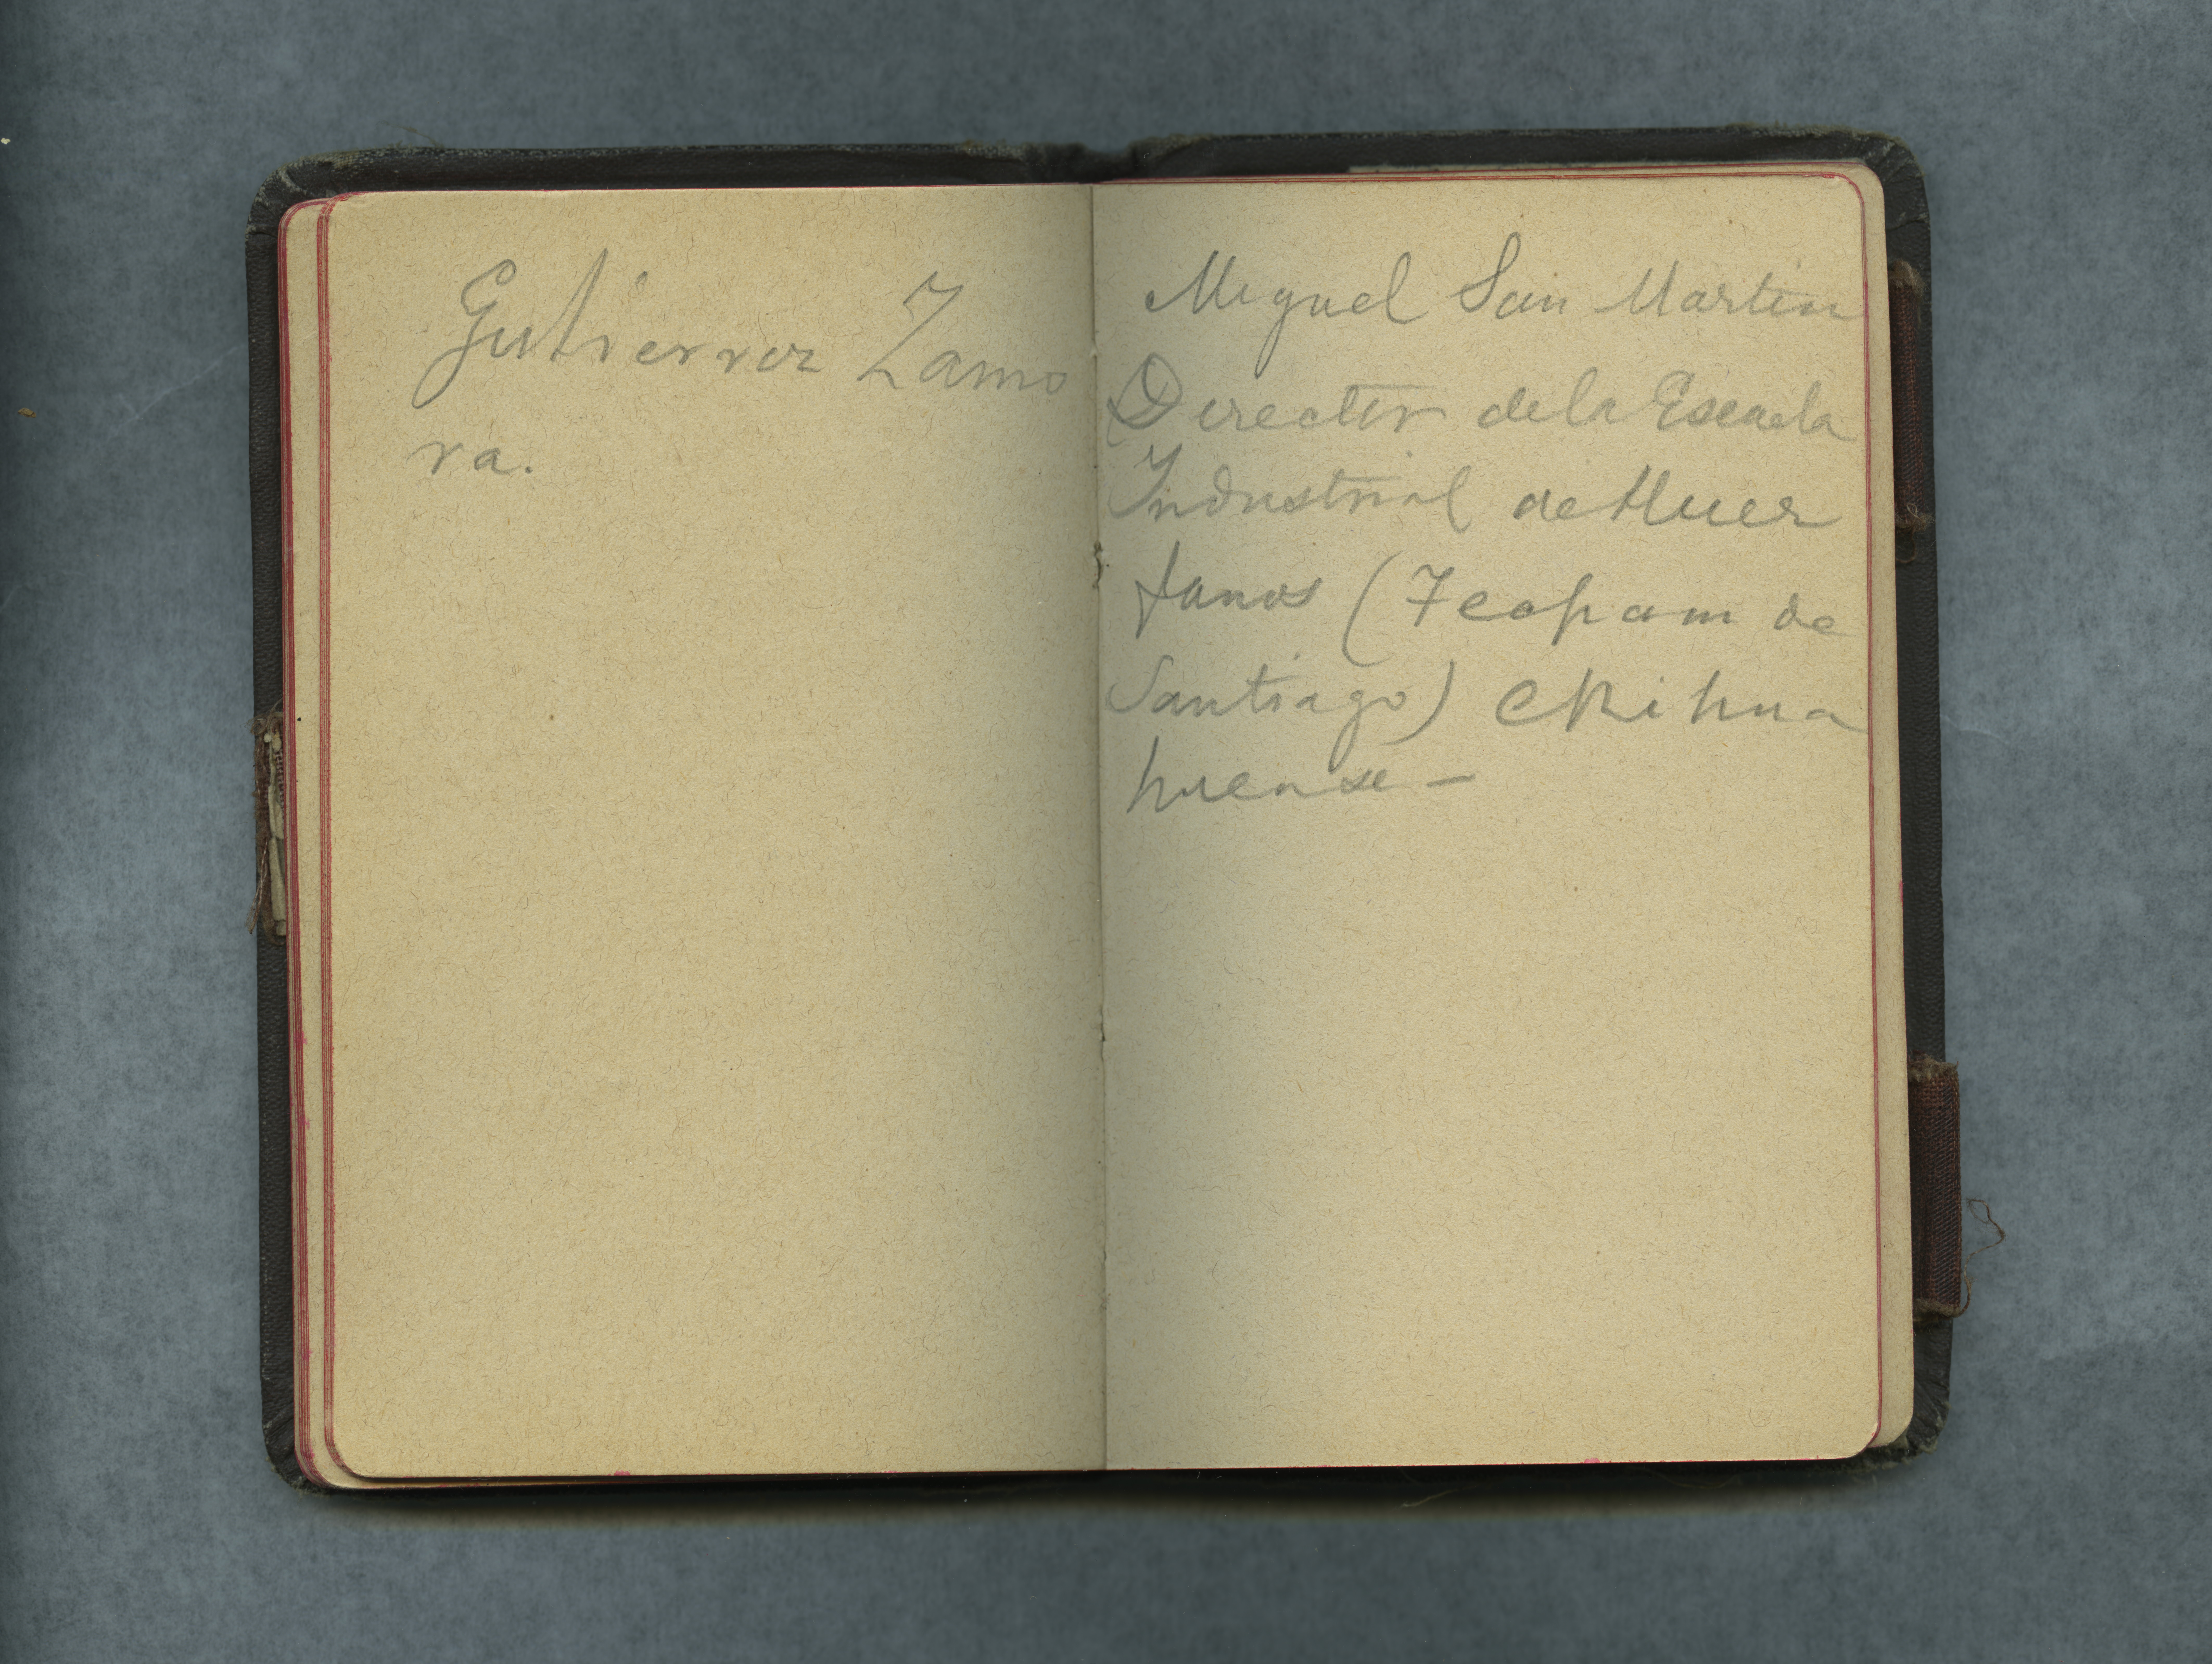 Gutierrez Zamo
ra.
Miguel San Martin
Director de la Escuela
Industrial de Huer
fanos (Tecpam de
Santiago) Chihua
huense –